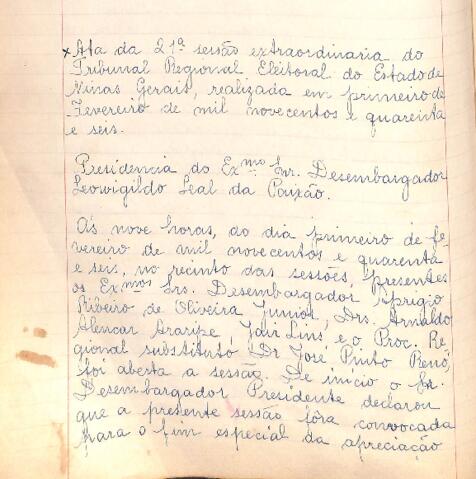 × Ata da 21ª sessão extraordinaria do
Tribunal Regional Eleitoral do Estado de
Minas Gerais, realizada em primeiro de
Fevereiro de mil novecentos e quarenta
e seis.
Presidencia do Exmo. Snr. Desembargador
Leowigildo Leal da Paixão.
Ás nove horas, do dia primeiro de fe-
vereiro de mil novecentos e quarenta
e seis, no recinto das sessões, presentes
os Exmos Srs. Desembargador Aprigio
Ribeiro de Oliveira Junior, Drs. Arnaldo
Alencar Araripe, Jair Lins, e o Proc. Re-
gional substituto Dr José Pinto Renó,
foi aberta a sessão. De inicio o Sr.
Desembargador Presidente declarou
que a presente sessão fôra convocada
para o fim especial da apreciação